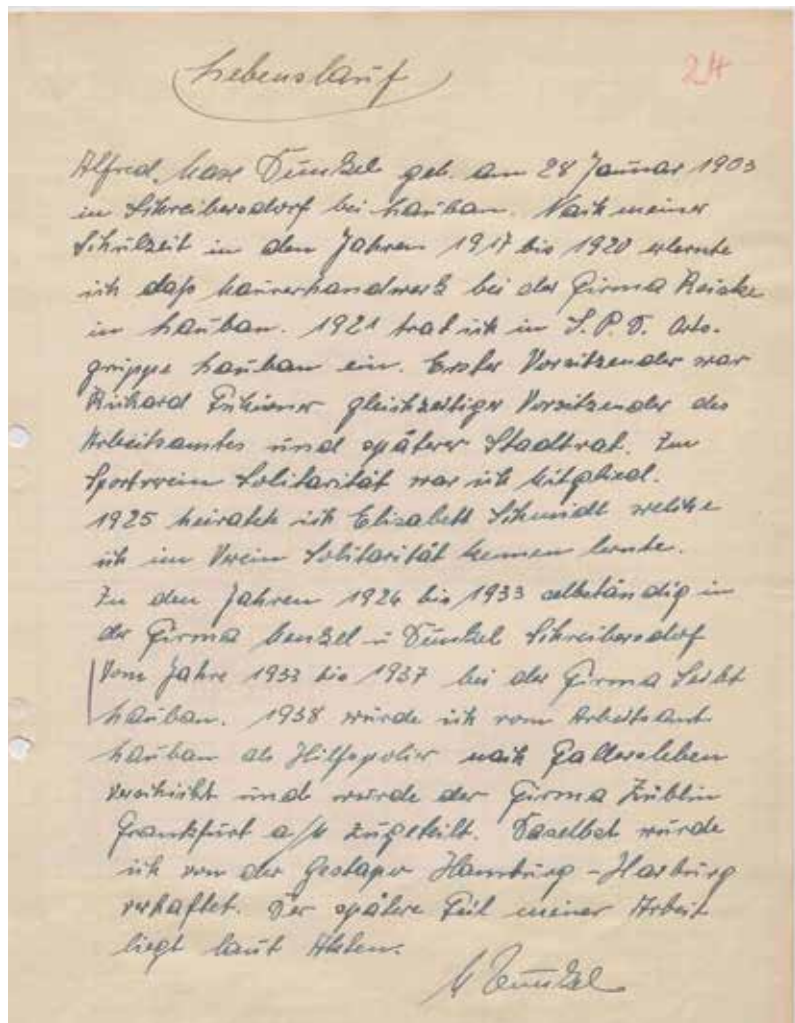 Lebenslauf
24
Alfred, Max Dunkel geb. am 28 Januar 1903
in Schreibersdorf bei Lauban. Nach meiner
Schulzeit in den Jahren 1917 bis 1920 erlernte
ich daß Maurerhandwerk bei der Firma
in Lauban. 1921 trat ich in S. P. D. Orts-
gruppe Lauban ein. Erster Vorsitzender war
Richard gleichzeitiger Vorsitzender des
Arbeitsamtes und späterer Stadtrat. Im
Sportverein Solitarität war ich Mitglied.
1925 heiratete ich Elisabeth Schmidt welche
ich im Verein Solitarität kennen lernte.
In den Jahren bis 1933 selbständig in
der Firma u Dunkel Schreibersdorf
Vom Jahre 1933 bis 1937 bei der Firma
Lauban. 1938 wurde ich vom Arbeitsamt
Lauban als Hilfspolier nach Fallersleben
verschickt und wurde der Firma Züblin
Frankfurt a/M zugeteilt. Daselbst wurde
ich von der Gestapo Hamburg-Harburg
verhaftet. Der spätere Teil meiner Arbeit
liegt laut Akten.
Dunkel